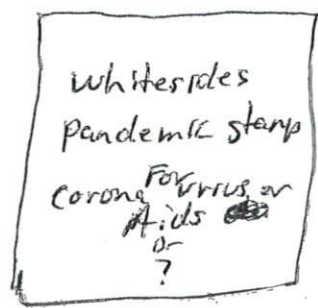 whitesides
pandemic stamp
For
corona virus or
Aids
or
?